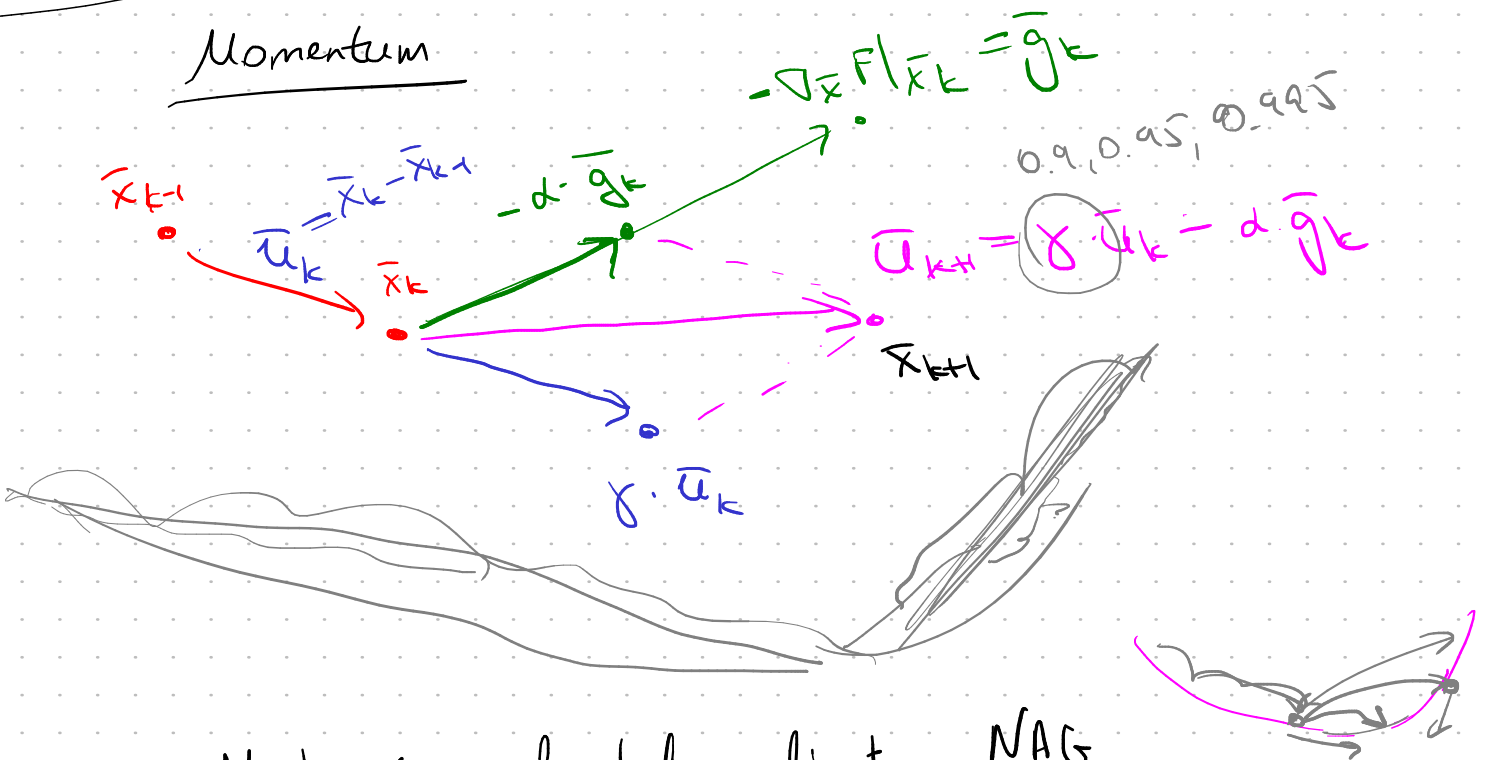 Momentum
-∇x̄ F|x̄k = ḡk
0.9, 0.95, 0.995
x̄k-1
ūk = x̄k - x̄k-1
-α·ḡk
ūk+1 = γ·ūk - α·ḡk
x̄k
x̄k+1
γ·ūk
NAG